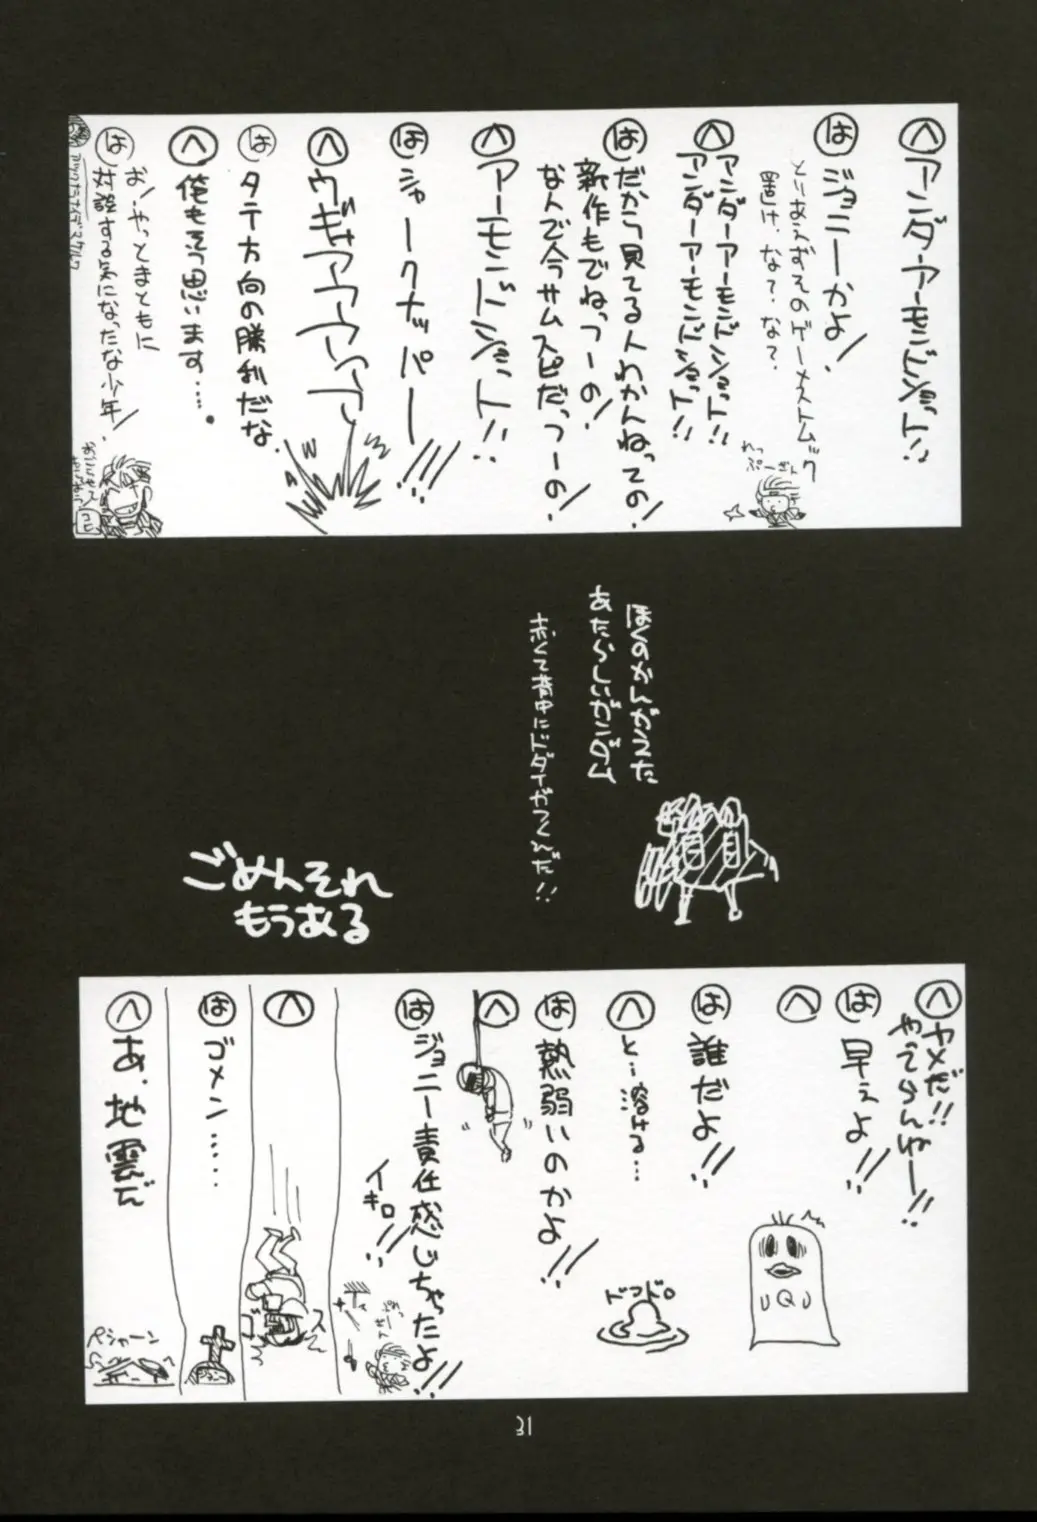 へ アンダーアーモンドショット!!
は ジョニーかよ!
とりあえずそのゲーメストムック
置け、な?、な?
へ アンダーアーモンドショット!!
アンダーアーモンドショット!!
れっぷーざん
は だから見てる人わかんねっての!
新作もでねっつーの!
なんで今サムスピだっつーの!
へ アーモンドショット!!
は シャークナッパー!!!
へ ウギャアアアァァァ
は タテ方向の勝利だな
へ 俺もそう思います…。
は お!やっとまともに
対談する気になったな少年!
ぼくのかんがえた
あたらしいガンダム
赤くて背中にドダイがつくんだ!!
ごめんそれ
もうある
へ ヤメだ!!
やってらんねー!!
は 早えよ!!
へ
は 誰だよ!!
へ と…溶ける…
ドロドロ
は 熱弱いのかよ!!
へ
は ジョニー責任感じちゃったよ!!
イキロ!!
へ
は ゴメン……
へ あ、地震だ
ペシャーン
31